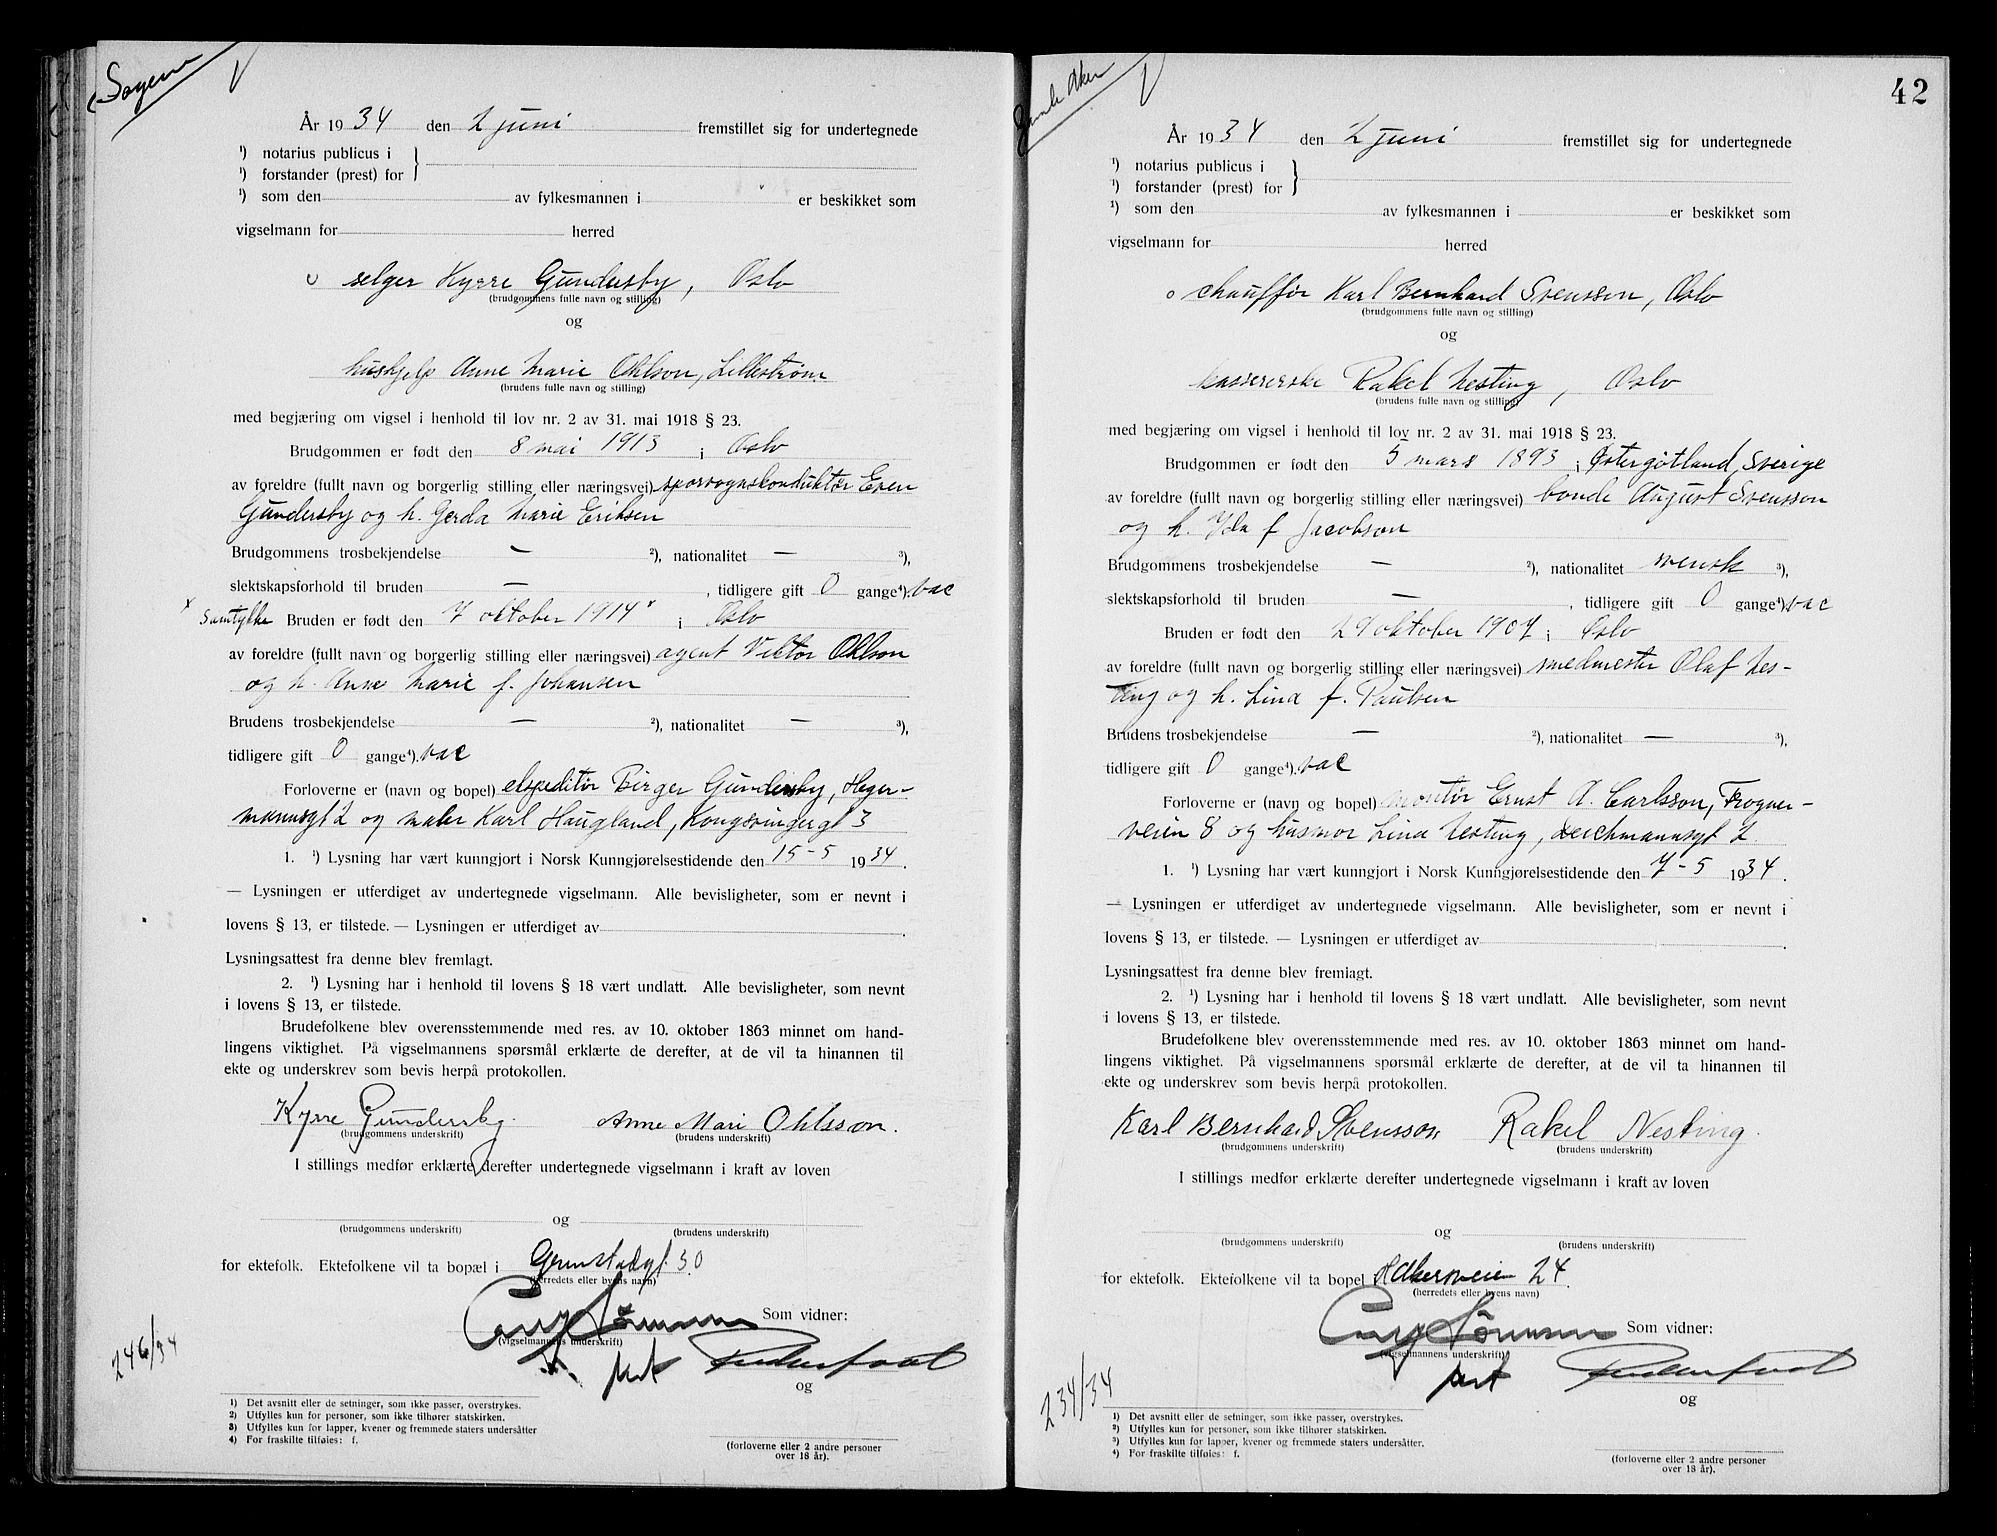 Sagene
År 1934 den 2 juni fremstillet sig for undertegnede
¹) notarius publicus i
¹) forstander (prest) for
¹) som den av fylkesmannen i er beskikket som
vigselmann for herred
selger Kyrre Gundersby, Oslo
(brudgommens fulle navn og stilling)
og
hushjelp Anne Marie Ohlson, Lillestrøm
(brudens fulle navn og stilling)
med begjæring om vigsel i henhold til lov nr. 2 av 31. mai 1918 § 23.
Brudgommen er født den 8 mai 1913 i Oslo
av foreldre (fullt navn og borgerlig stilling eller næringsvei) sporvognskonduktør Even
Gundersby og h. Gerda Marie Eriksen
Brudgommens trosbekjendelse — ²), nationalitet — ³),
slektskapsforhold til bruden — , tidligere gift 0 gange⁴). vac
x Samtykke Bruden er født den 7 oktober 1914 x i Oslo
av foreldre (fullt navn og borgerlig stilling eller næringsvei) agent Viktor Ohlson
og h. Anne Marie f. Johansen
Brudens trosbekjendelse — ²), nationalitet — ³),
tidligere gift 0 gange⁴). vac
Forloverne er (navn og bopel) ekspeditør Birger Gundersby, Heger-
mannsgt 2 og maler Karl Haugland, Kongsvingergt 3
1. ¹) Lysning har vært kunngjort i Norsk Kunngjørelsestidende den 15-5 1934.
— Lysningen er utferdiget av undertegnede vigselmann. Alle bevisligheter, som er nevnt i
lovens § 13, er tilstede. — Lysningen er utferdiget av
Lysningsattest fra denne blev fremlagt.
2. ¹) Lysning har i henhold til lovens § 18 vært undlatt. Alle bevisligheter, som nevnt
i lovens § 13, er tilstede.
Brudefolkene blev overensstemmende med res. av 10. oktober 1863 minnet om hand-
lingens viktighet. På vigselmannens spørsmål erklærte de derefter, at de vil ta hinannen til
ekte og underskrev som bevis herpå protokollen.
Kyrre Gundersby. Anne Mari Ohlsson.
(brudgommens underskrift) (brudens underskrift)
I stillings medfør erklærte derefter undertegnede vigselmann i kraft av loven
og
(brudgommens underskrift) (brudens underskrift)
for ektefolk. Ektefolkene vil ta bopæl i Grimstadgt. 30
(herredets eller byens navn)
Som vidner:
(vigselmannens underskrift)
246/34
og
1) Det avsnitt eller de setninger, som ikke passer, overstrykes.
2) Utfylles kun for personer, som ikke tilhører statskirken.
3) Utfylles kun for lapper, kvener og fremmede staters undersåtter
4) For fraskilte tilføies: f.
(forloverne eller 2 andre personer
over 18 år).
42
Gamle Aker
År 1934 den 2 juni fremstillet sig for undertegnede
¹) notarius publicus i
¹) forstander (prest) for
¹) som den av fylkesmannen i er beskikket som
vigselmann for herred
chauffør Karl Bernhard Svensson, Oslo
(brudgommens fulle navn og stilling)
og
kassererske Rakel Nesting, Oslo
(brudens fulle navn og stilling)
med begjæring om vigsel i henhold til lov nr. 2 av 31. mai 1918 § 23.
Brudgommen er født den 5 mars 1893 i Østergötland, Sverige
av foreldre (fullt navn og borgerlig stilling eller næringsvei) bonde August Svensson
og h. Yda f Jacobson
Brudgommens trosbekjendelse — ²), nationalitet svensk ³),
slektskapsforhold til bruden — , tidligere gift 0 gange⁴). vac
Bruden er født den 29 oktober 1907 i Oslo
av foreldre (fullt navn og borgerlig stilling eller næringsvei) smedmester Olaf Nes-
ting og h. Lina f. Paulsen
Brudens trosbekjendelse — ²), nationalitet — ³),
tidligere gift 0 gange⁴). vac
Forloverne er (navn og bopel) montør Ernst A. Carlsson, Frogner-
veien 8 og husmor Lina Nesting, Deichmannsgt 2
1. ¹) Lysning har vært kunngjort i Norsk Kunngjørelsestidende den 7-5 1934.
— Lysningen er utferdiget av undertegnede vigselmann. Alle bevisligheter, som er nevnt i
lovens § 13, er tilstede. — Lysningen er utferdiget av
Lysningsattest fra denne blev fremlagt.
2. ¹) Lysning har i henhold til lovens § 18 vært undlatt. Alle bevisligheter, som nevnt
i lovens § 13, er tilstede.
Brudefolkene blev overensstemmende med res. av 10. oktober 1863 minnet om hand-
lingens viktighet. På vigselmannens spørsmål erklærte de derefter, at de vil ta hinannen til
ekte og underskrev som bevis herpå protokollen.
Karl Bernhard Svensson Rakel Nesting.
(brudgommens underskrift) (brudens underskrift)
I stillings medfør erklærte derefter undertegnede vigselmann i kraft av loven
og
(brudgommens underskrift) (brudens underskrift)
for ektefolk. Ektefolkene vil ta bopel 24
(herredets eller byens navn)
Som vidner:
(vigselmannens underskrift)
234/34
og
1) Det avsnitt eller de setninger, som ikke passer, overstrykes.
2) Utfylles kun for personer, som ikke tilhører statskirken.
3) Utfylles kun for lapper, kvener og fremmede staters undersåtter.
4) For fraskilte tilføies: f.
(forloverne eller 2 andre personer
over 18 år).